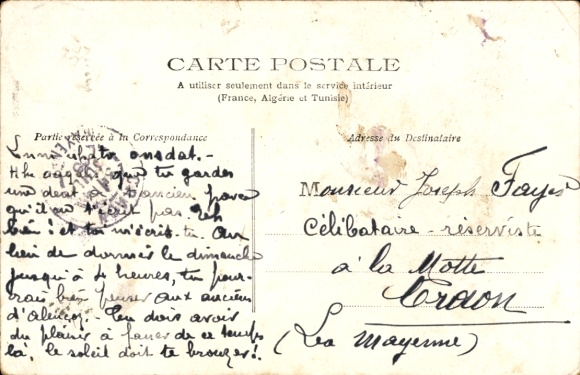 CARTE POSTALE
A utiliser seulement dans le service intérieur
(France, Algérie et Tunisie)
Partie réservée à la Correspondance
Adresse du Destinataire
que tu gardes
une dent à ancien parce
qu'il ne t'écrit pas. Eh
bien! et toi m'écris-tu. Au
lieu de dormir le dimanche
jusqu'à 4 heures, tu pour-
rais bien penser aux anciens
d'Alençon. Tu dois avoir
du plaisir à faner de ce temps
là, le soleil doit te bronzer!.
Monsieur Joseph Fayer
Célibataire - réserviste
à la Motte
Craon
(La Mayenne)